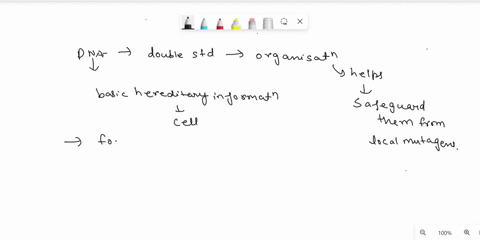 DNA → double std → organisatn
↓ ↘ helps
basic hereditary informatn ↓
↓ Safeguard
cell them from
→ fo. local mutagens.
100%